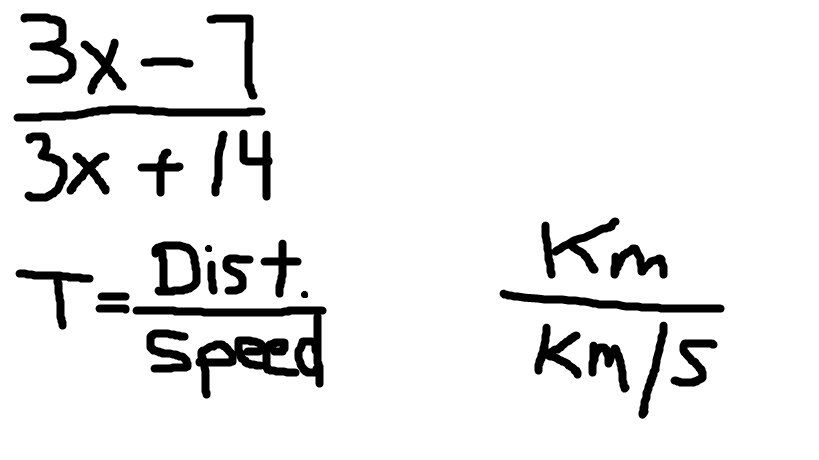 3x - 7
3x + 14
T = Dist. / Speed
Km
Km/s